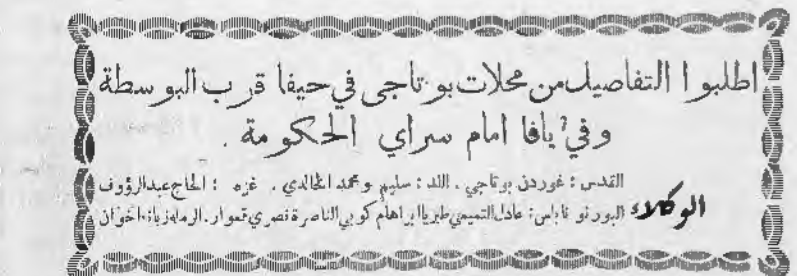 اطلبوا التفاصيل من محلات بوتاجي في حيفا قرب البوسطة
وفي يافا امام سراي الحكومة .
القدس : غوردن بوتاجي . اللد : سليم ومحمد الخالدي . غزه : الحاج عبدالرؤوف
الوكلاء البورنو نابلس : عادل التميمي طبريا ابراهام كوبي الناصرة نصري قعوار . الرمله زبانه اخوان